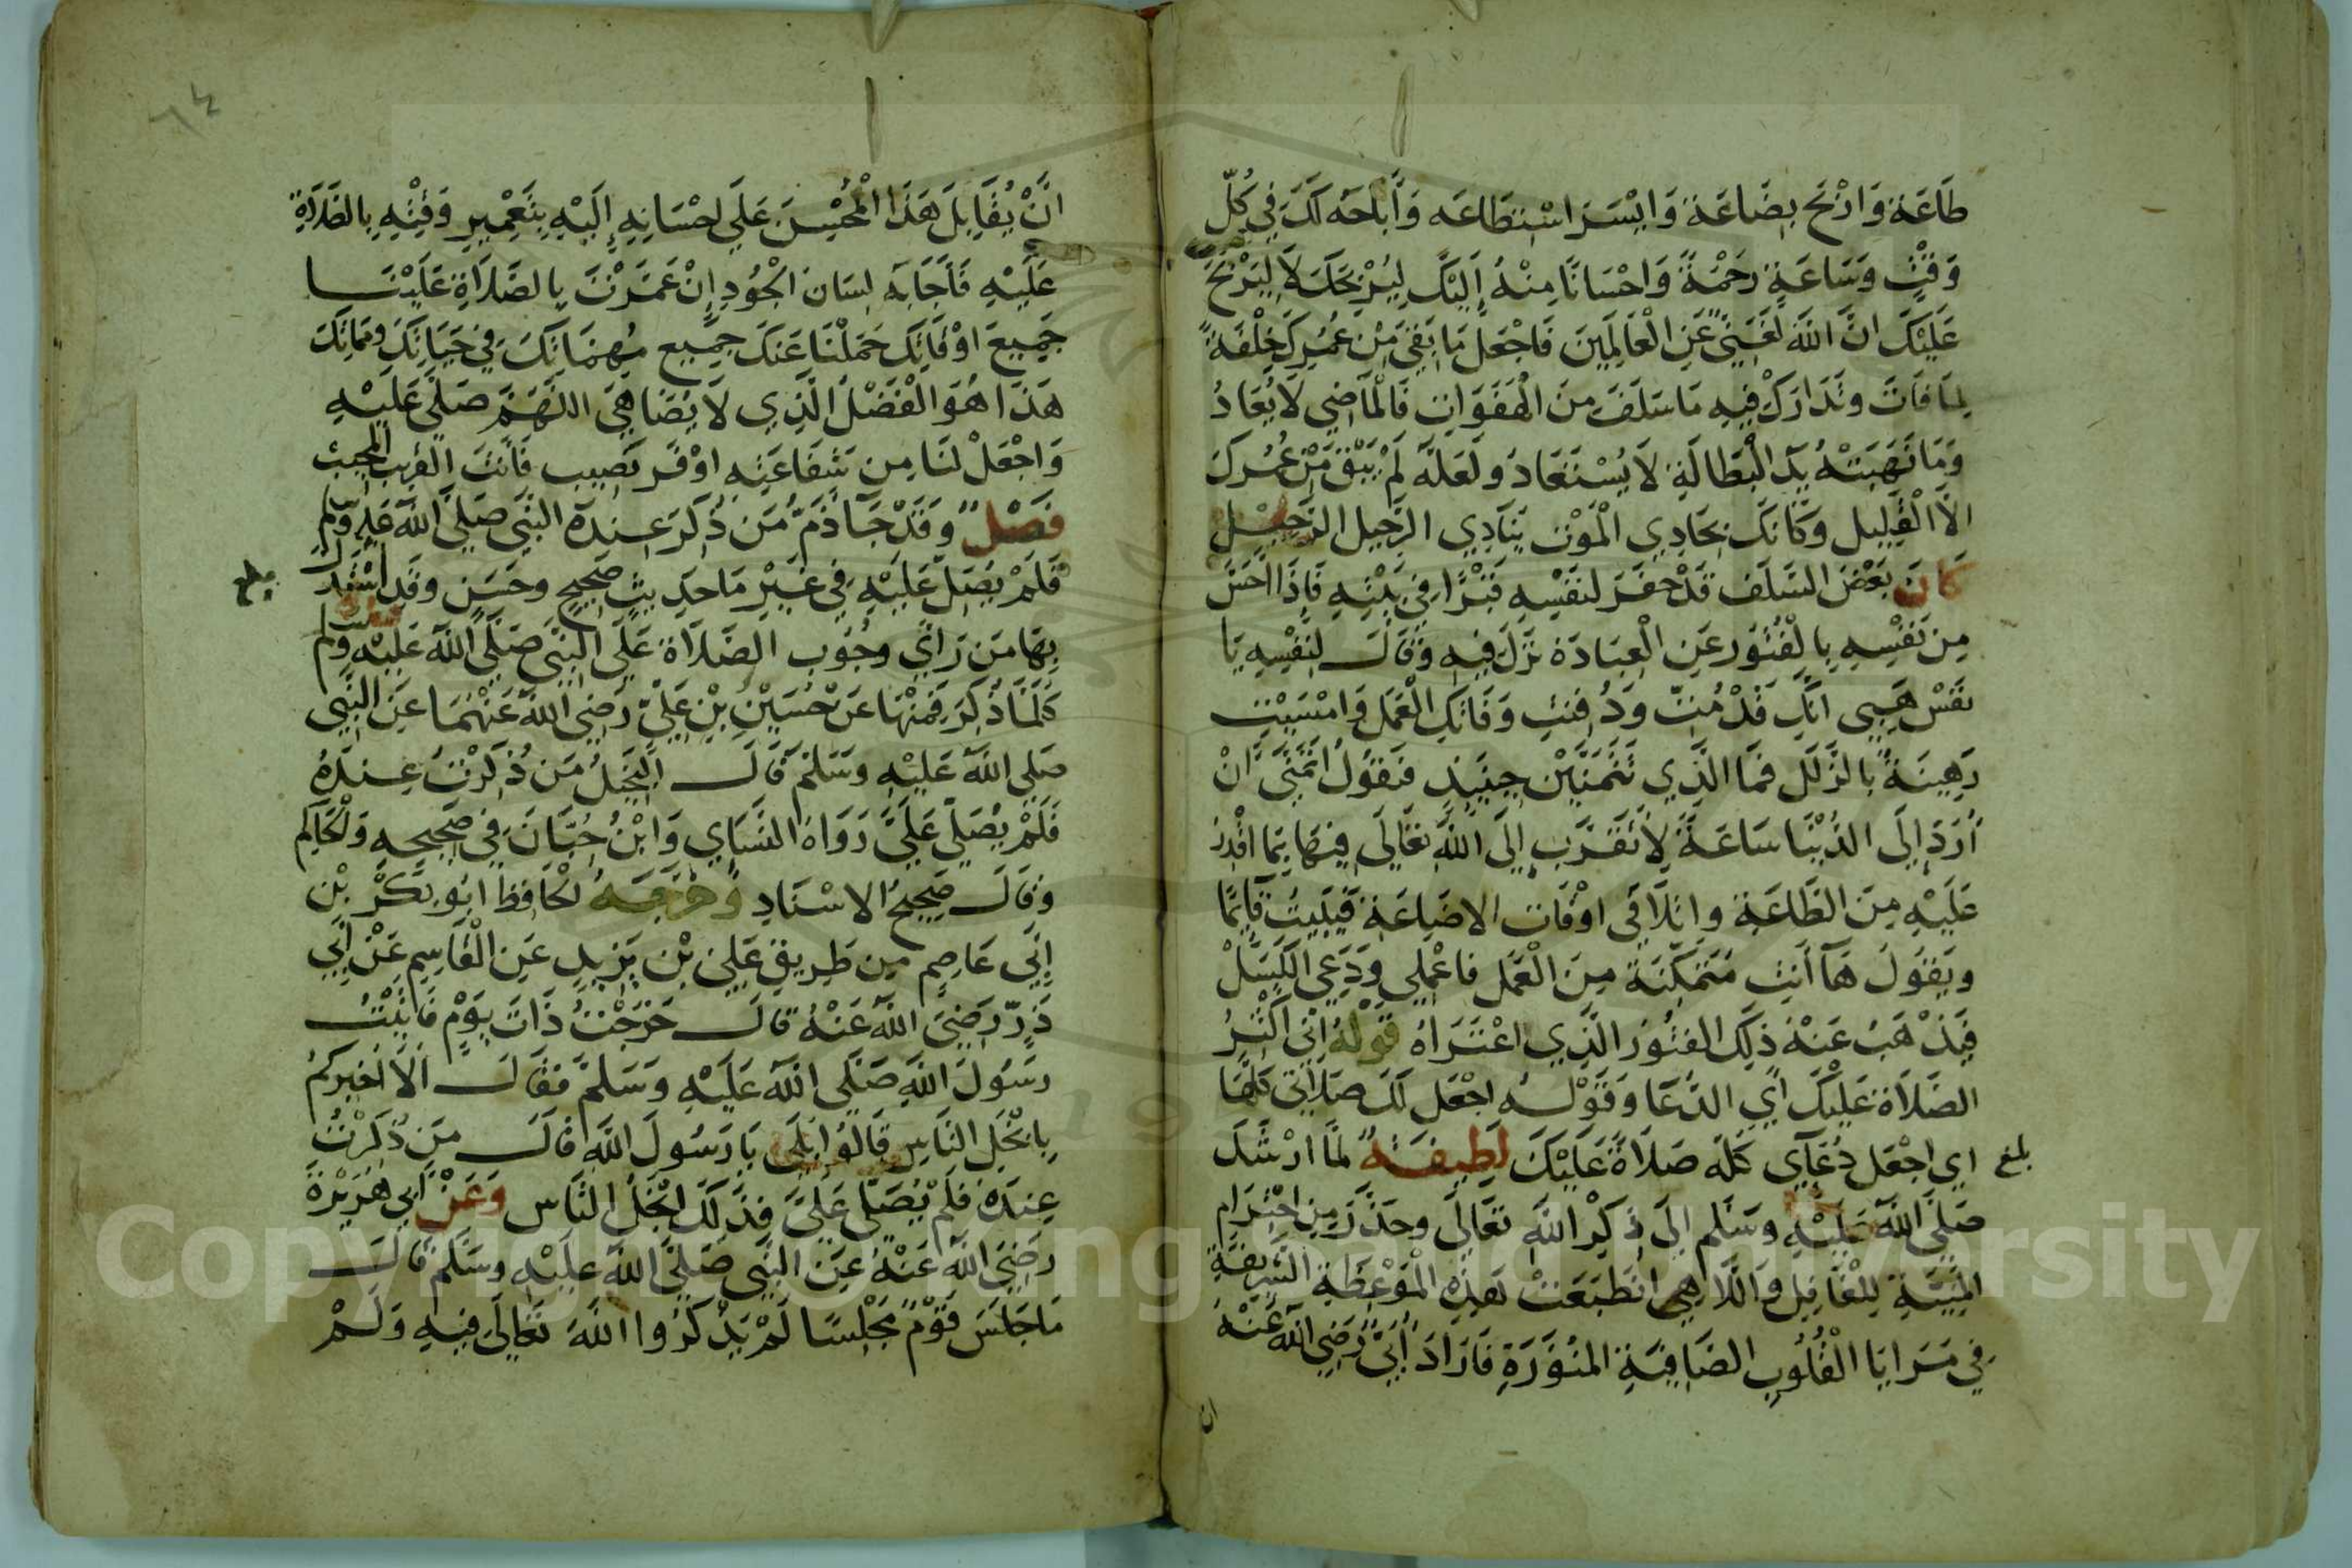 طَاعَة وَارْبَح بِضَاعَة وَايْسَر اسْتِطَاعَه وَأَبَاحَهُ لَكَ فِي كُلِّ
وَقْتٍ وَسَاعَةٍ رَحْمَةً وَاحْسَانًا مِنْهُ إِلَيْكَ لِيُرْبِحَكَ لَا لِيَرْبَحَ
عَلَيْكَ انَّ اللهَ لَغَنِيٌّ عَنِ الْعَالَمِينَ فَاجْعَلْ مَا بَقِيَ مِنْ عُمُرِكَ خِلْفَةً
لِمَا فَاتَ وتَدَارَكْ فِيهِ مَا سَلَفَ مِنَ الْهَفَوَاتِ فَالْمَاضِي لَا يُعَادُ
وَمَا نَهَبَتْهُ يَدُ الْبَطَالَةِ لَا يُسْتَعَادُ ولَعَلَّهُ لَمْ يَبْقَ مِنْ عُمُرِكَ
الَّا الْقَلِيلُ وَكَأَنَّكَ بِحَادِي الْمَوْتِ يُنَادِي الرَّحِيل الرَّحِيل
كَانَ بَعْضُ السَّلَفِ قَدْ حَفَرَ لِنَفْسِهِ قَبْرًا فِي بَيْتِهِ فَإِذَا احَسَّ
مِن نَفْسِهِ بِالْفُتُورِ عَنِ الْعِبَادَة نَزَلَ فِيهِ وَقَالَ لِنَفْسِهِ يَا
نَفْسُ هَبِي انَّكِ قَدْ مُتِّ ودُفِنْتِ وَفَاتَكِ الْعَمَلُ وَامْسَيْتِ
رَهِينَةً بِالزَّلَلِ فَمَا الَّذِي تَتَمَنَّيْنَ حِينَئِذٍ فَتَقُولُ أَتَمَنَّى أَنْ
أُرَدَّ إِلَى الدُّنْيَا سَاعَةً لِأَتَقَرَّبَ إِلَى اللهِ تَعَالَى فِيهَا بِمَا اقْدِرُ
عَلَيْهِ مِنَ الطَّاعَةِ واتَلَافَى اوْقَاتَ الاضَاعَةِ فَيَثِبُ قَائِمًا
ويَقُولُ هَا أَنْتِ مُتَمَكِّنَةٌ مِنَ الْعَمَلِ فَاعْمَلِي وَدَعِي الْكَسَلْ
فَيَذْهَبُ عَنْهُ ذلِكَ الفُتُورُ الَّذِي اعْتَرَاهُ قَوْلُهُ إِنِّي اكْثِرُ
الصَّلَاةَ عَلَيْكَ اي الدُّعَا وَقَوْلُهُ اجْعَل لَكَ صَلَاتِي كُلَّهَا
اي اجْعَل دُعَآي كُلَّهُ صَلَاةً عَلَيْكَ لَطِيفَةٌ لَمَّا ارْشَدَ
بلغ
صَلَّى اللهُ عَلَيْهِ وسَلَّم إِلَى ذِكْرِ اللهِ تَعَالَى وحَذَّرَ مِن اخْتِرَامِ
الْمَنِيَّةِ لِلْغَافِلِ وَاللَّاهِي انْطَبَعَتْ هَذِهِ الْمَوْعِظَةِ الشَّرِيفَة
فِي مَرَايَا الْقُلُوبِ الصَّافِيَةِ الْمُنَوَّرَةِ فَأَرَادَ أُبَيٌّ رَضِيَ اللهُ عَنْهُ
ان
٦٤
انْ يُقَابِلَ هَذَا الْمُحْسِنَ عَلَى احْسَانِهِ إِلَيْهِ بِتَعْمِيرِ وَقْتِهِ بِالصَّلَاةِ
عَلَيْهِ فَأَجَابَهُ لِسَانُ الْجُودِ إِنْ عَمَّرْتَ بِالصَّلَاةِ عَلَيْنَا
جَمِيعَ اوْقَاتِكَ حَمَلْنَا عَنْكَ جَمِيع مُهِمَّاتِكَ فِي حَيَاتِكَ ومَمَاتِكَ
هَذَا هُوَ الْفَضْلُ الَّذِي لَا يُضَاهَى اللَّهُمَّ صَلِّ عَلَيْهِ
وَاجْعَلْ لَنَا مِن شَفَاعَتِهِ اوْفَر نَصِيب فَأَنْتَ القَرِيبُ المجيب
فَصْلٌ وَقَدْ جَآ ذَمُّ مَن ذُكِرَ عِنْدَهُ النَّبِيُّ صَلَّى اللهُ عَلَيْهِ وسلم
فَلَمْ يُصَلِّ عَلَيْهِ فِي غَيْرِ مَا حَدِيثٍ صَحِيحٍ وحَسَنٍ وقَدِ اسْتَدَلَّ
بِهَا مَن رَأَى وجُوب الصَّلَاة عَلَى النَّبِيِّ صَلَّى اللهُ عَلَيْهِ وسلم
كُلَّمَا ذُكِرَ فَمِنْهَا عَنْ حُسَيْنِ بْنِ عَلِيٍّ رَضِيَ اللهُ عَنْهُمَا عَنِ النَّبِي
صَلَّى اللهُ عَلَيْهِ وسَلَّمَ قَالَ الْبَخِيلُ مَن ذُكِرْتُ عِنْدَهُ
فَلَمْ يُصَلِّ عَلَيَّ رَوَاهُ النَّسَاي وَابْنُ حِبَّانَ فِي صَحِيحِهِ وَالْحَاكِم
وقَالَ صَحِيحُ الاسْنَادِ وخَرَّجَهُ الْحَافِظُ ابُو بَكْرِ بْن
أَبِي عَاصِمٍ مِن طَرِيقِ عَلِيِّ بْن يَزِيدٍ عَنِ الْقَاسِمِ عَنْ أَبِي
ذَرٍّ رَضِيَ اللهُ عَنْهُ قَالَ خَرَجْتُ ذَاتَ يَوْمٍ فَأَتَيْتُ
رَسُولَ اللهِ صَلَّى اللهُ عَلَيْهِ وَسَلَّمَ فَقَالَ أَلَا أُخْبِرُكُمْ
بِابْخَلِ النَّاسِ قَالُوا بَلَى يَا رَسُولَ اللهِ قَالَ مَن ذُكِرْتُ
عِنْدَهُ فَلَمْ يُصَلِّ عَلَيَّ فَذَلِكَ ابْخَلُ النَّاسِ وَعَنْ أَبِي هُرَيْرَةَ
رَضِيَ اللهُ عَنْهُ عَنِ النَّبِيِّ صَلَّى اللهُ عَلَيْهِ وسَلَّمَ قَالَ
مَا جَلَسَ قَوْمٌ مَجْلِسًا لَمْ يَذْكُرُوا اللهَ تَعَالَى فِيهِ وَلَمْ
Copyright © King Saud University